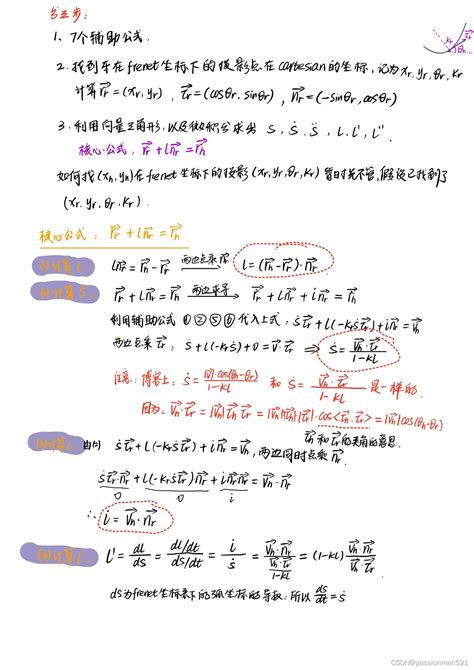 分三步:
1、7个辅助公式.
2. 找到车在frenet坐标下的投影点在cartesian的坐标, 记为 xr, yr, θr, kr
计算 r⃗r = (xr, yr), τ⃗r = (cosθr, sinθr), n⃗r = (-sinθr, cosθr)
kr τ⃗r
θr
3. 利用向量三角形, 以及微积分求出 s, ṡ, s̈, L, L', L''.
核心公式, r⃗r + L n⃗r = r⃗h
如何找 (xh, yh) 在frenet坐标下的投影 (xr, yr, θr, kr) 暂时先不管, 假设已找到了
(xr, yr, θr, kr).
核心公式: r⃗r + L n⃗r = r⃗h
L n⃗r = r⃗h - r⃗r 两边点乘 n⃗r L = (r⃗h - r⃗r)·n⃗r
r⃗r + L n⃗r = r⃗h 两边求导 ṙ⃗r + L ṅ⃗r + L̇ n⃗r = ṙ⃗h
利用辅助公式 ① ② ⑤ ⑥ 代入上式: ṡ τ⃗r + L(-kr ṡ τ⃗r) + L̇ n⃗r = v⃗h
两边点乘 τ⃗r: ṡ + L(-kr ṡ) + 0 = v⃗·τ⃗r ⇒ ṡ = v⃗h·τ⃗r / 1-kL
注意: 博客上: ṡ = |v⃗|cos(θh-θr) / 1-kL 和 ṡ = v⃗h·τ⃗r / 1-kL 是一样的.
因为: v⃗h·τ⃗r = |v⃗h| τ⃗h τ⃗r = |v⃗h||τ⃗h||τ⃗r|·cos<τ⃗h, τ⃗r> = |v⃗h|cos(θh-θr)
τ⃗h 和 τ⃗r 的夹角的意思.
由 ṡ τ⃗r + L(-kr ṡ τ⃗r) + L̇ n⃗r = v⃗h, 两边同时点乘 n⃗r.
ṡ τ⃗r n⃗r + L(-kr ṡ τ⃗r) n⃗r + L̇ n⃗r n⃗r = v⃗h·n⃗r
0 0 L̇
∴ L̇ = v⃗h·n⃗r
L' = dl/ds = dl/dt / ds/dt = L̇ / ṡ = v⃗h·n⃗r / (v⃗h·τ⃗r / 1-kL) = (1-kL) v⃗h·n⃗r / v⃗h·τ⃗r
ds为frenet坐标系下的弧坐标的导数, 所以 ds/dt = ṡ
CSDN@passionman521